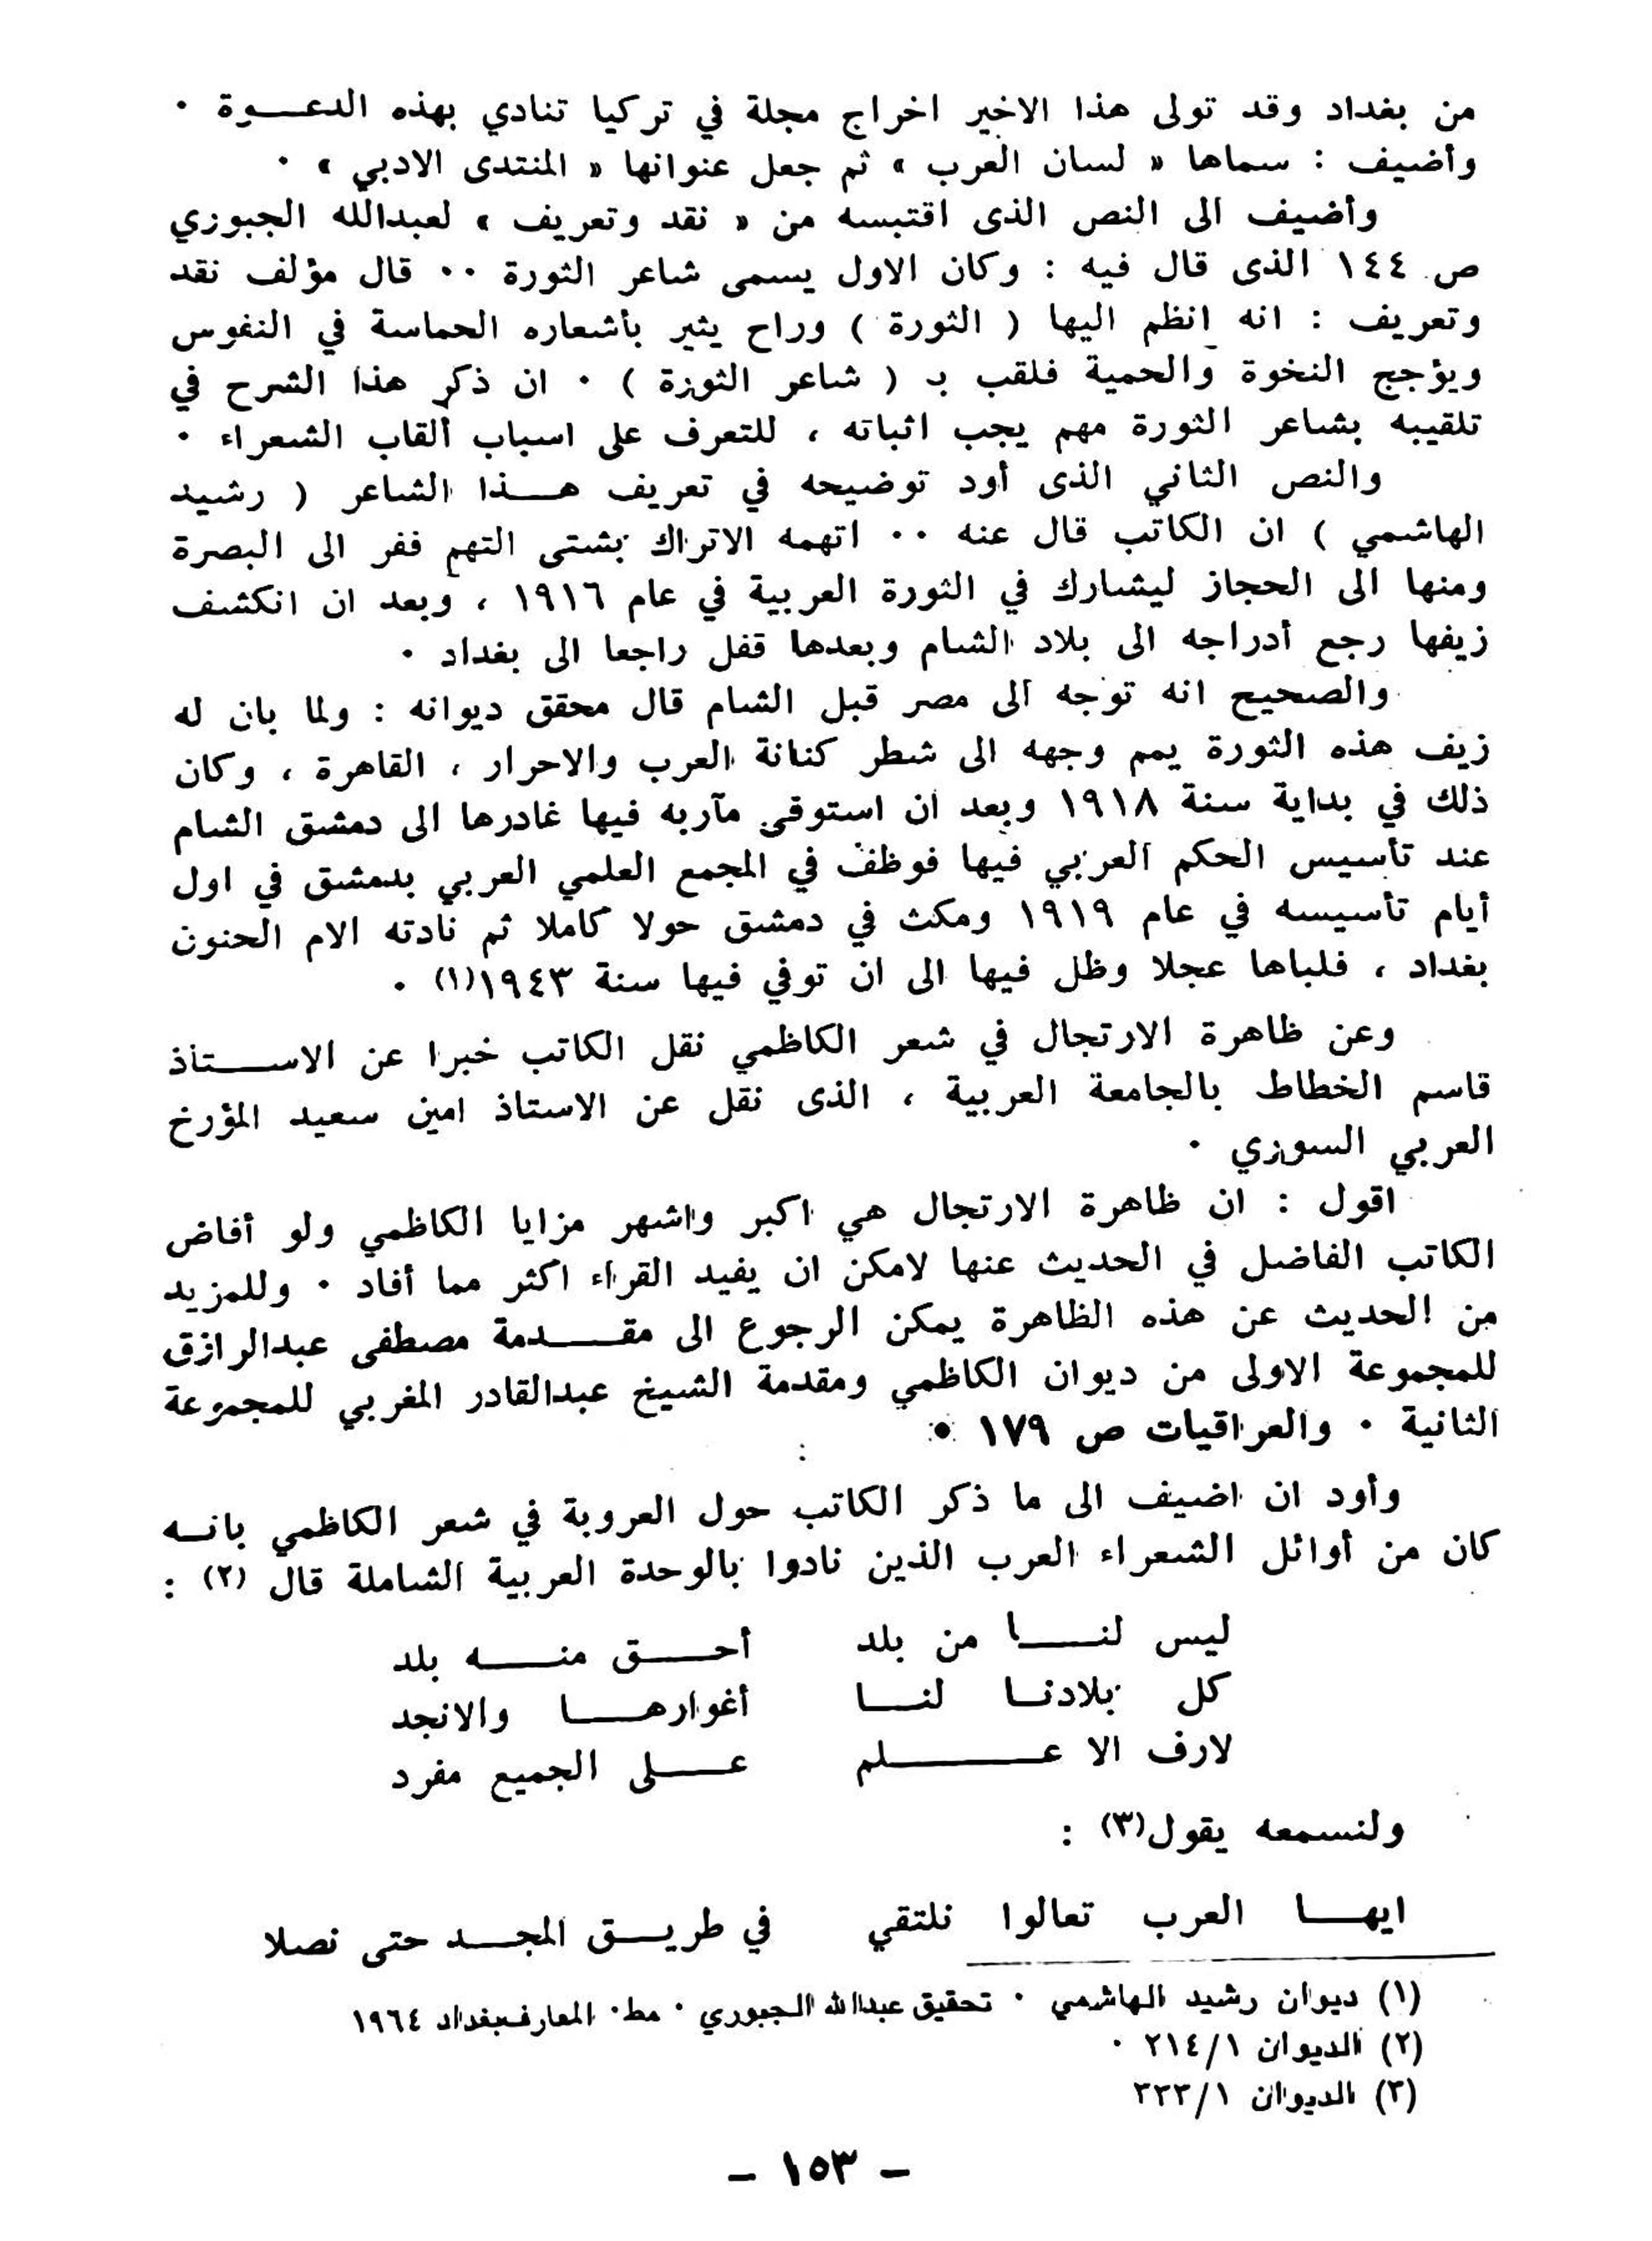 من بغداد وقد تولى هذا الاخير اخراج مجلة في تركيا تنادي بهذه الدعـوة ٠
وأضيف : سماها « لسان العرب » ثم جعل عنوانها « المنتدى الادبي » ٠
وأضيف الى النص الذى اقتبسه من « نقد وتعريف » لعبدالله الجبوري
ص ١٤٤ الذى قال فيه : وكان الاول يسمى شاعر الثورة ٠٠ قال مؤلف نقد
وتعريف : انه انظم اليها ( الثورة ) وراح يثير بأشعاره الحماسة في النفوس
ويؤجج النخوة والحمية فلقب بـ ( شاعر الثورة ) ٠ ان ذكر هذا الشرح في
تلقيبه بشاعر الثورة مهم يجب اثباته ، للتعرف على اسباب ألقاب الشعراء ٠
والنص الثاني الذى أود توضيحه في تعريف هـذا الشاعر ( رشيد
الهاشمي ) ان الكاتب قال عنه ٠٠ اتهمه الاتراك بشتى التهم ففر الى البصرة
ومنها الى الحجاز ليشارك في الثورة العربية في عام ١٩١٦ ، وبعد ان انكشف
زيفها رجع أدراجه الى بلاد الشام وبعدها قفل راجعا الى بغداد ٠
والصحيح انه توجه الى مصر قبل الشام قال محقق ديوانه : ولما بان له
زيف هذه الثورة يمم وجهه الى شطر كنانة العرب والاحرار ، القاهرة ، وكان
ذلك في بداية سنة ١٩١٨ وبعد ان استوفى مآربه فيها غادرها الى دمشق الشام
عند تأسيس الحكم العربي فيها فوظف في المجمع العلمي العربي بدمشق في اول
أيام تأسيسه في عام ١٩١٩ ومكث في دمشق حولا كاملا ثم نادته الام الحنون
بغداد ، فلباها عجلا وظل فيها الى ان توفي فيها سنة ١٩٤٣(١) ٠
وعن ظاهرة الارتجال في شعر الكاظمي نقل الكاتب خبرا عن الاسـتاذ
قاسم الخطاط بالجامعة العربية ، الذى نقل عن الاستاذ امين سعيد المؤرخ
العربي السوري ٠
اقول : ان ظاهرة الارتجال هي اكبر واشهر مزايا الكاظمي ولو أفاض
الكاتب الفاضل في الحديث عنها لامكن ان يفيد القراء اكثر مما أفاد ٠ وللمزيد
من الحديث عن هذه الظاهرة يمكن الرجوع الى مقـدمة مصطفى عبدالرازق
للمجموعة الاولى من ديوان الكاظمي ومقدمة الشيخ عبدالقادر المغربي للمجموعة
الثانية ٠ والعراقيات ص ١٧٩ ٠
وأود ان اضيف الى ما ذكر الكاتب حول العروبة في شعر الكاظمي بانـه
كان من أوائل الشعراء العرب الذين نادوا بالوحدة العربية الشاملة قال (٢) :
ليس لنـا من بلد أحـق منـه بلد
كل بلادنـا لنـا أغوارهـا والانجد
لارف الا عـلم عـلى الجميع مفرد
ولنسمعه يقول(٣) :
ايهـا العرب تعالوا نلتقي في طريـق المجـد حتى نصلا
(١) ديوان رشيد الهاشمي ٠ تحقيق عبدالله الجبوري ٠ مط٠ المعارف‌بغداد ١٩٦٤
(٢) الديوان ٢١٤/١ ٠
(٣) الديوان ٣٣٣/١
– ١٥٣ –